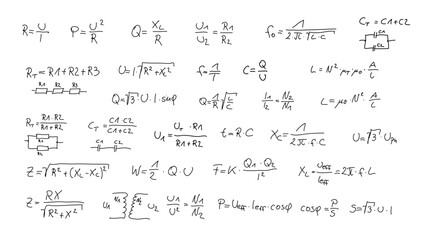 R = U/I P = U²/R Q = XL/R U1/U2 = R1/R2 fo = 1/2·π·√L·C CT = C1+C2
C1
C2
RT = R1+R2+R3 U = I·√R²+XL² f = 1/T C = Q/U L = N²·μr·μo·A/L
R1 R2 R3
Q = √3·U·I·sinφ Q = 1/R√L/C I1/I2 = N2/N1 L = μo·N²·A/L
RT = R1·R2/R1+R2 CT = C1·C2/C1+C2 U1 = UT·R1/R1+R2 t = R·C XC = 1/2π·f·C U = √3·Uph
R1
R2
C1 C2
Z = √R²+(XL-XC)² W = 1/2·Q·U F = K·Q1·Q2/I² XL = Ueff/Ieff = 2π·f·L
Z = RX/√R²+X² U1 N1 N2 U2 U1/U2 = N1/N2 P = Ueff·Ieff·cosφ cosφ = P/S S = √3·U·I